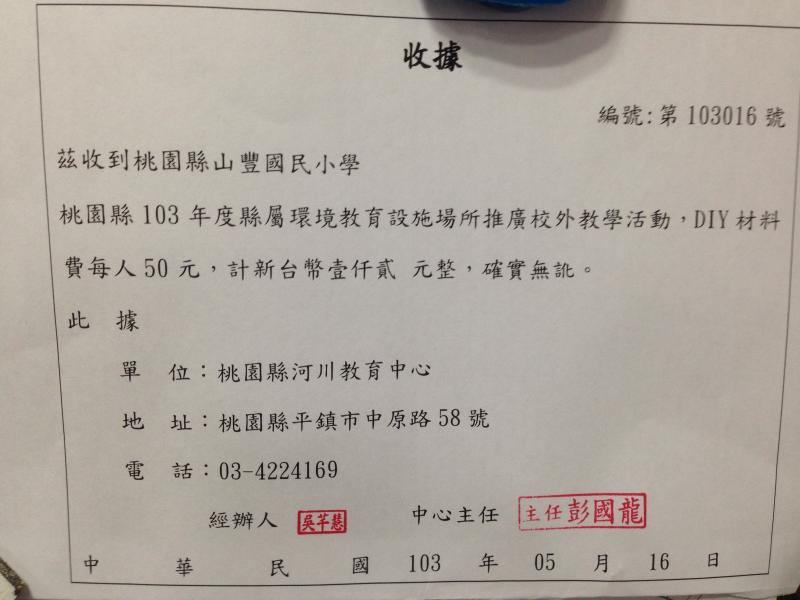 收據
編號:第 103016 號
茲收到桃園縣山豐國民小學
桃園縣 103 年度縣屬環境教育設施場所推廣校外教學活動，DIY 材料
費每人 50 元，計新台幣壹仟貳 元整，確實無訛。
此 據
單 位：桃園縣河川教育中心
地 址：桃園縣平鎮市中原路 58 號
電 話：03-4224169
經辦人 吳芊慧 中心主任 主任彭國龍
中 華 民 國 103 年 05 月 16 日